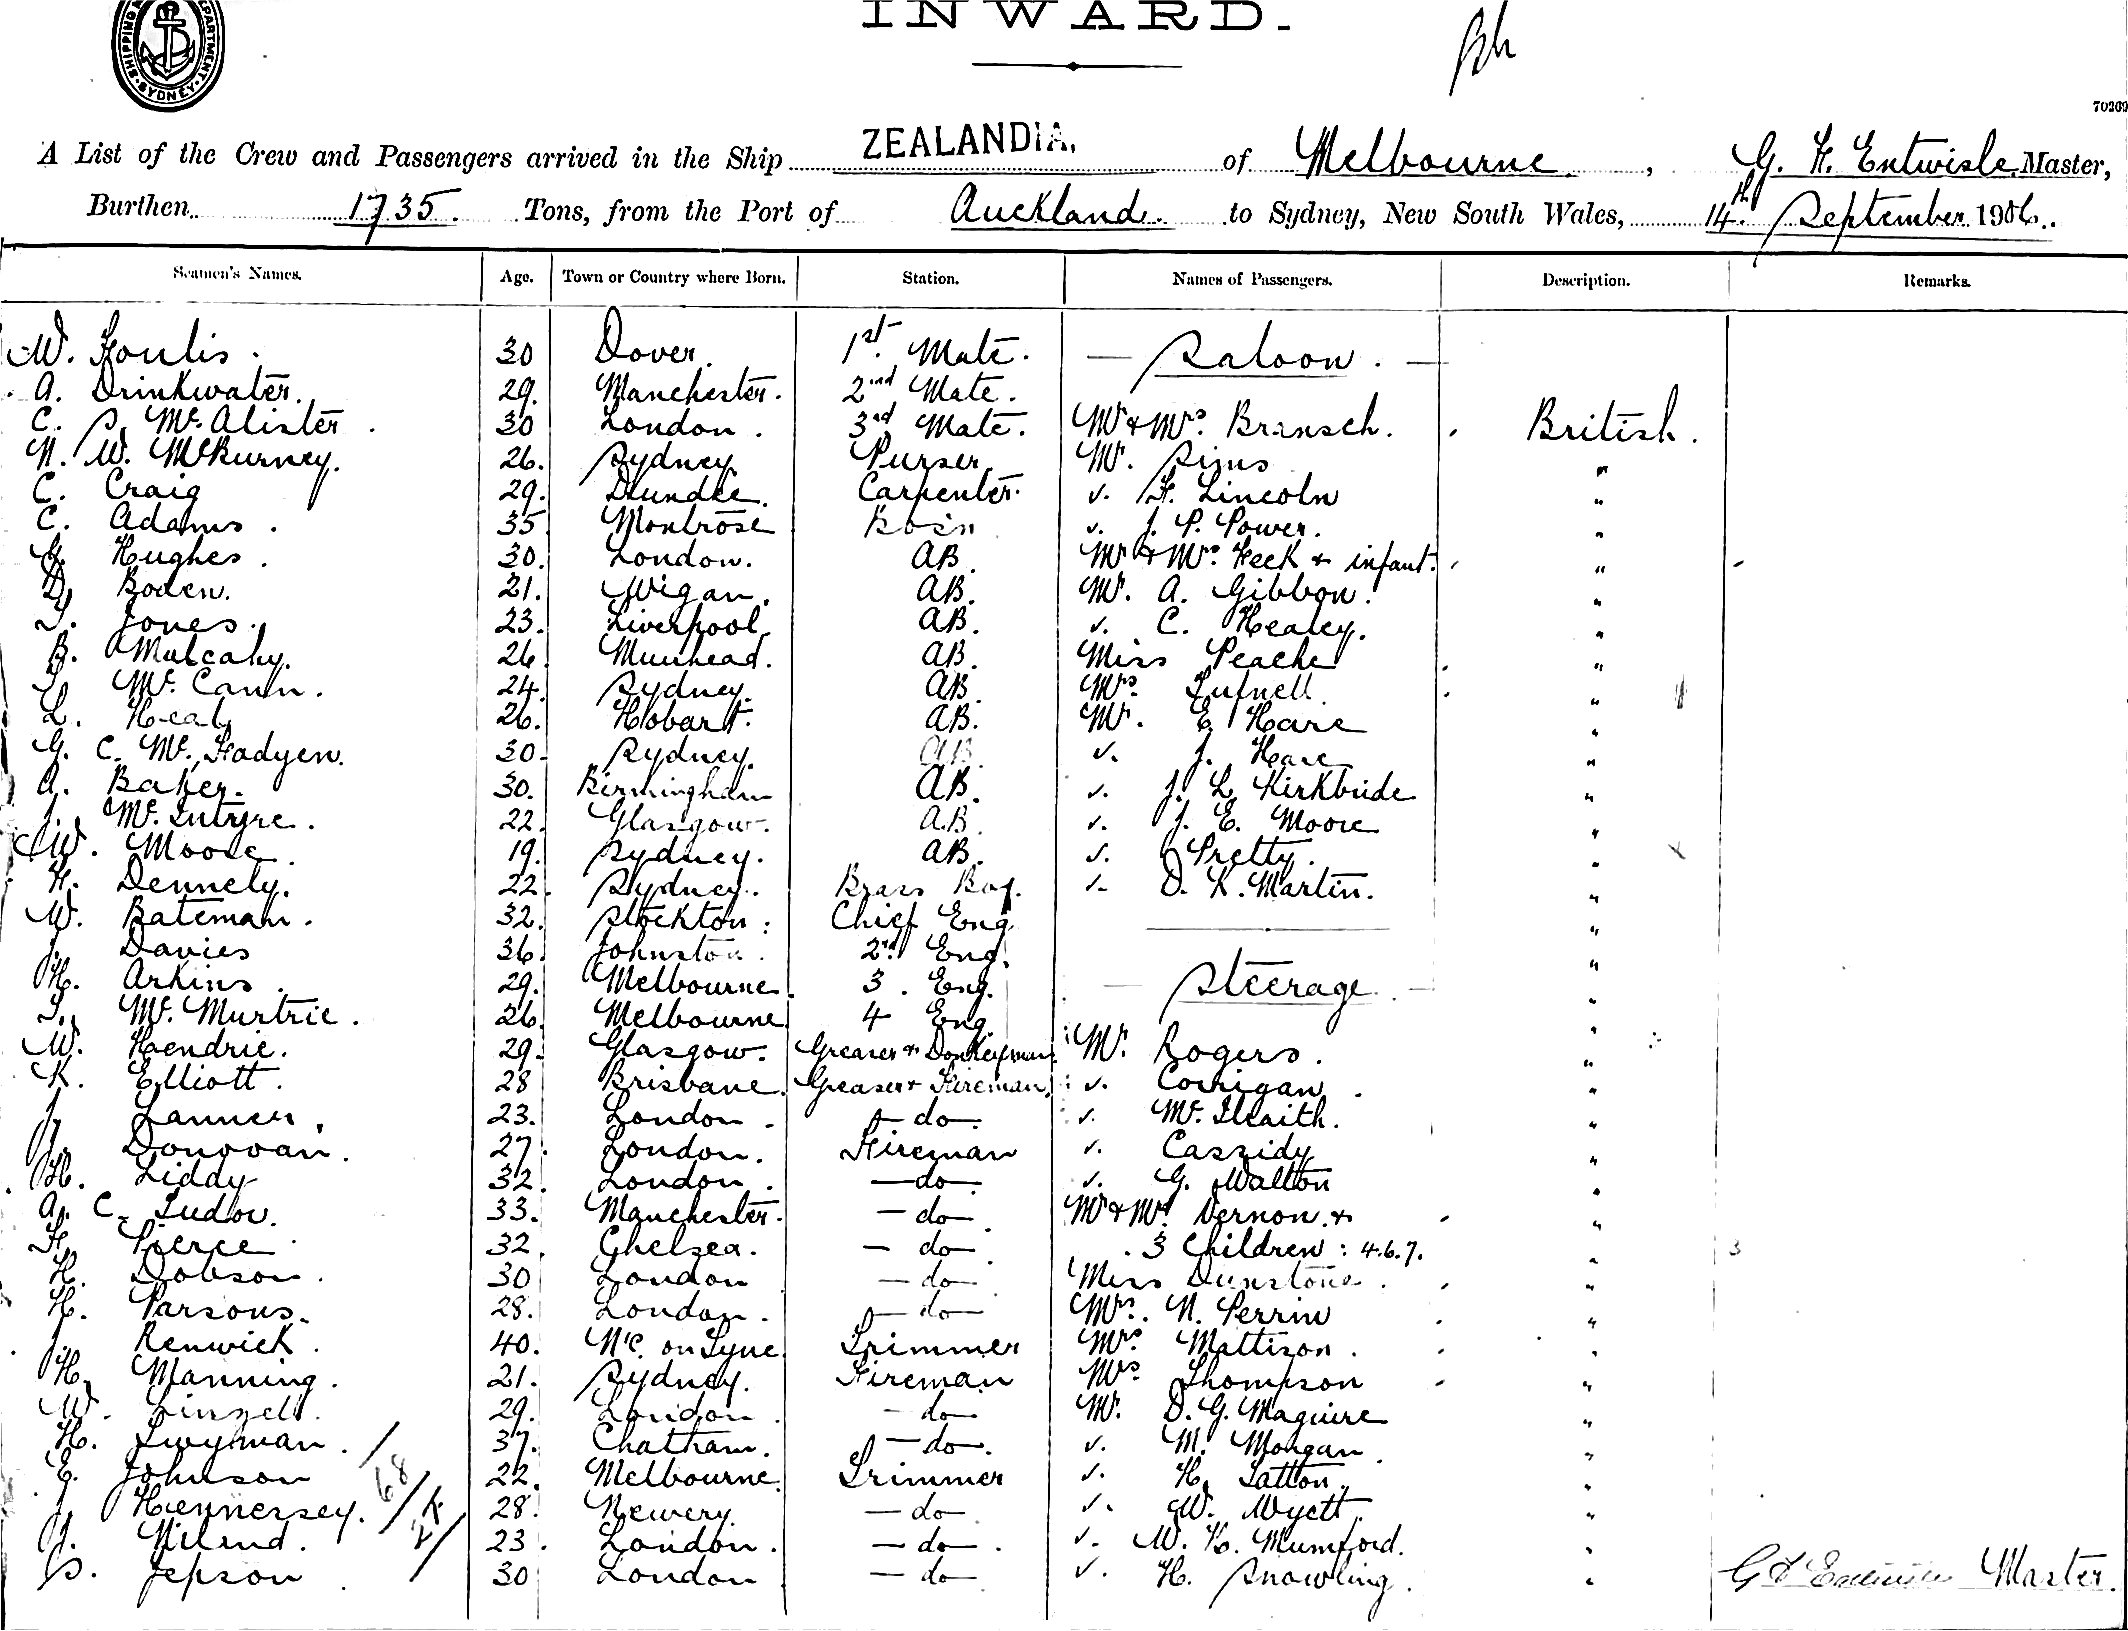 SHIPPING DEPARTMENT SYDNEY
INWARD.
A List of the Crew and Passengers arrived in the Ship ZEALANDIA, of Melbourne, G. H. Entwisle Master,
Burthen 1735. Tons, from the Port of Auckland. to Sydney, New South Wales, 14th September 1906.
Seamen's Names. Age. Town or Country where Born. Station. Names of Passengers. Description. Remarks.
W. Foulis. 30 Dover. 1st. Mate. — Saloon. —
A. Drinkwater. 29. Manchester. 2nd Mate.
C. S. Mc.Alister. 30 London. 3rd Mate. Mr & Mrs. Bransch. British.
N. W. McBurney. 26. Sydney. Purser. Mr. Sims "
C. Craig 29. Dundee. Carpenter. " F. Lincoln "
C. Adams. 35 Montrose Bosn " J. P. Power. "
G. Hughes. 30. London. AB. Mr & Mrs. Heck & infant. "
D. Boden. 21. Wigan. AB. Mr. A. Gibbon. "
T. Jones. 23. Liverpool. AB. " C. Healey. "
B. Mulcahy. 26 Muirhead. AB. Miss Peache "
L. Mc. Cann. 24. Sydney. AB. Mrs. Tufnell "
L. Healy 26. Hobart. AB. Mr. E. Hare "
G. C. Mc. Fadyen. 30. Sydney. AB " J. Hare "
A. Baker. 30. Birmingham AB. " J. L. Kirkbride "
J. Mc. Intyre. 22. Glasgow. A.B. " J. E. Moore "
W. Moose. 19. Sydney. AB. " Pretty. "
H. Dennely. 22. Sydney. Brass Boy. " D. K. Martin. "
W. Bateman. 32. Stockton. Chief Eng "
J. Davies 36. Johnston. 2nd Eng. "
H. Arkins. 29. Melbourne. 3. Eng. — Steerage. — "
T. Mc. Murtrie. 26. Melbourne 4 Eng. "
W. Hendrie. 29. Glasgow. Greaser & Donkeyman Mr. Rogers. "
K. Elliott. 28 Brisbane. Greaser & Fireman. " Corrigan. "
J. Lanner. 23. London. — do — " Mc. Ilraith. "
J. Donovan. 27. London. Fireman " Cassidy "
H. Liddy 32. London. — do " G. Walton "
A. C. Tudor. 33. Manchester. — do — Mr & Mrs Vernon. & "
F. Pierce 32. Chelsea. — do — 3 Children: 4.6.7. " 3
H. Dobson. 30 London — do — Miss Dunstone. "
H. Parsons. 28. London. — do — Mrs. N. Perrin "
J. Renwick. 40. N'c. on Tyne. Trimmer Mrs Mattison. "
H. Manning. 21. Sydney. Fireman Mrs Thompson "
W. 29. London. — do — Mr. D. G. Maguire "
H. Twyman. 37. Chatham. — do —. " M. Morgan "
E. Johnson 22. Melbourne Trimmer " H. Tatton. "
Hennersey. 28. Newery. — do — " W. Wyett. "
J. 23. London. — do —. " W. H. Mumford. "
S. Jepson 30 London — do — " H. Snowling. " Master.
68